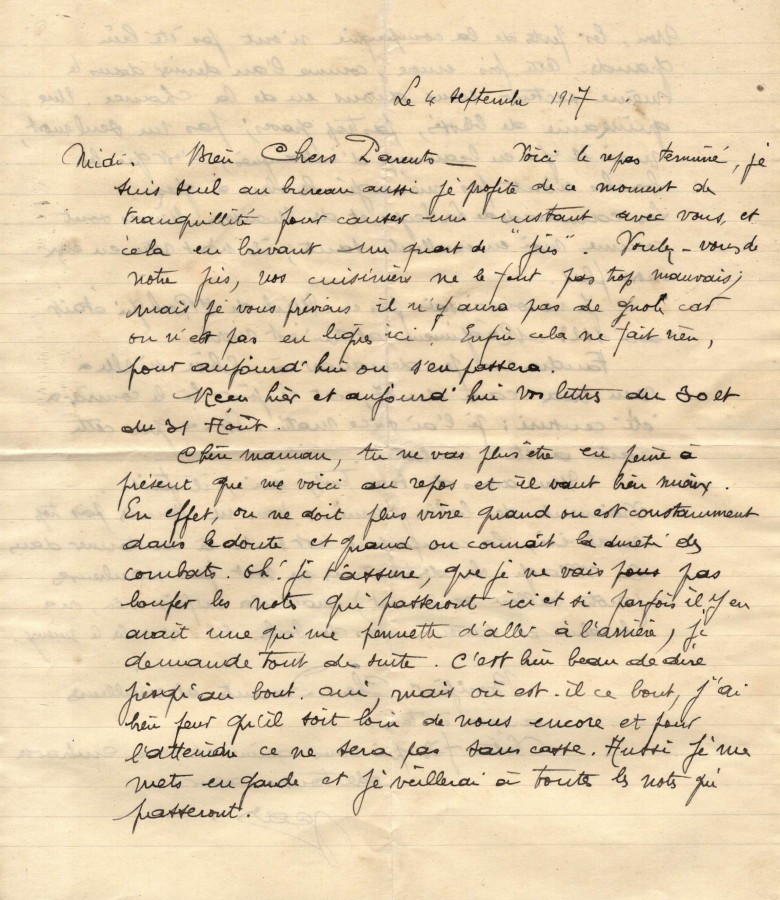 Le 4 septembre 1917
Midi. Bien Chers Parents — Voici le repas terminé, je
suis seul au bureau aussi je profite de ce moment de
tranquillité pour causer un instant avec vous, et
cela en buvant un quart de "jus". Voulez-vous de
notre jus, nos cuisiniers ne le font pas trop mauvais;
mais je vous préviens il n'y aura pas de gnole car
on n'est pas en lignes ici! Enfin cela ne fait rien,
pour aujourd'hui on s'en passera.
Reçu hier et aujourd'hui vos lettres du 30 et
du 31 Août.
Chère maman, tu ne vas plus être en peine à
présent que me voici au repos et il vaut bien mieux.
En effet, on ne doit plus vivre quand on est constamment
dans le doute et quand on connaît la dureté des
combats. Oh! je t'assure, que je ne vais pas
louper les notes qui passeront ici et si parfois il y en
avait une qui me permette d'aller à l'arrière, je
demande tout de suite. C'est bien beau de dire
jusqu'au bout. oui, mais où est-il ce bout, j'ai
bien peur qu'il soit loin de nous encore et pour
l'atteindre ce ne sera pas sans casse. Aussi je me
mets en garde et je veillerai à toutes les notes qui
passeront.